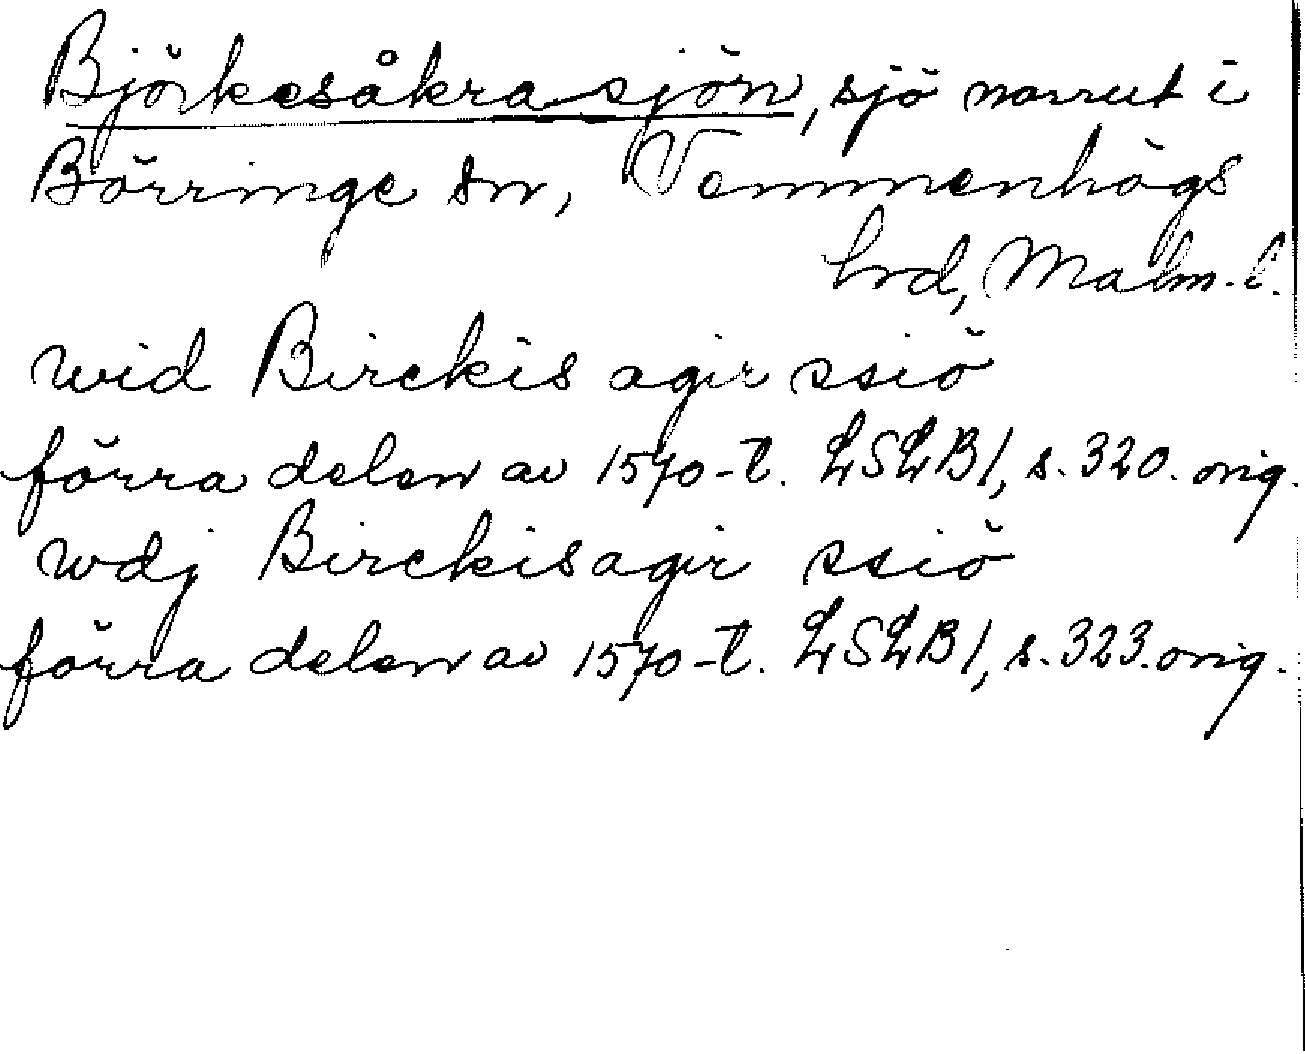 Björkesåkrasjön, sjö norrut i
Börringe sn, Vemmenhögs
hrd, Malm. l.
wid Birckis agir ssiö
förra delen av 1570-t. LSLB1, s. 320. orig.
wdj Birckisagir ssiö
förra delen av 1570-t. LSLB1, s. 323. orig.